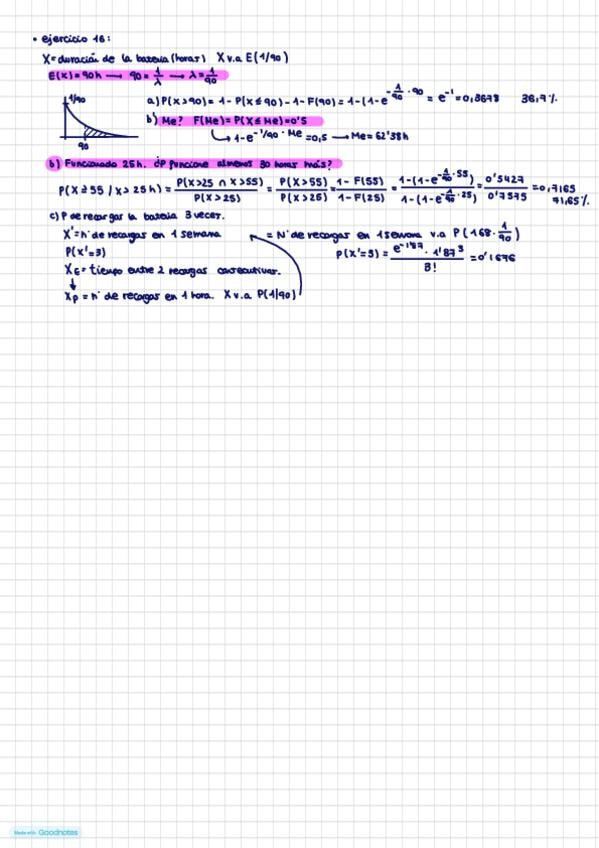 • ejercicio 16:
X = duración de la batería (horas) X v.a E(1/90)
E(X) = 90h → 90 = 1/λ → λ = 1/90
1/90
90
a) P(X>90) = 1 - P(X≤90) - 1 - F(90) = 1-(1-e^(-1/90 · 90) = e^-1 = 0,3678 36,7%
b) Me? F(Me) = P(X≤Me) = 0'5
↳ 1-e^(-1/90 · Me) = 0,5 → Me = 62'38h
b) Funcionado 25h. ¿P funcione almenos 30 horas más?
P(X≥55 / X>25h) = P(X>25 ∩ X>55) / P(X>25) = P(X>55) / P(X>25) = 1-F(55) / 1-F(25) = 1-(1-e^(-1/90 · 55)) / 1-(1-e^(-1/90 · 25)) = 0'5427 / 0'7575 = 0,7165
71,65%
c) P de recargar la batería 3 veces.
X' = nº de recargas en 1 semana = Nº de recargas en 1 semana v.a P(168 · 1/90)
P(X'=3) P(X'=3) = e^(-1'87) · 1'87^3 / 3! = 0'1696
X_E = tiempo entre 2 recargas consecutivas.
↓
X_P = nº de recargas en 1 hora. X v.a P(1/90)
Made with Goodnotes